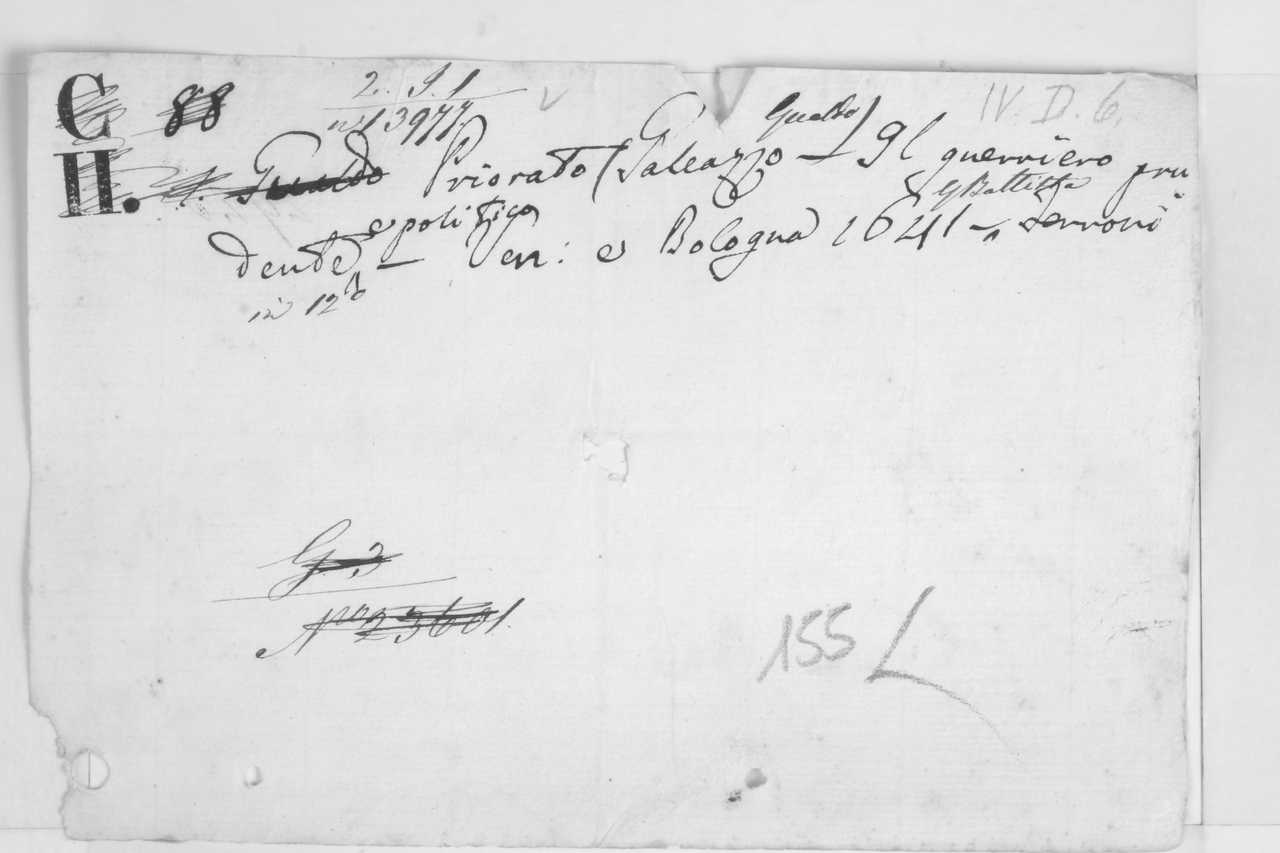 G 88 2. I. 1 IV. D. 6.
H. n° 13977
Gualdo Priorato (Galeazzo Gualdo) — Il guerriero pru
dente e politico — Ven: e Bologna 1641 — G Battista Ferroni
in 12°
G. 3
N° 23601.
155 L